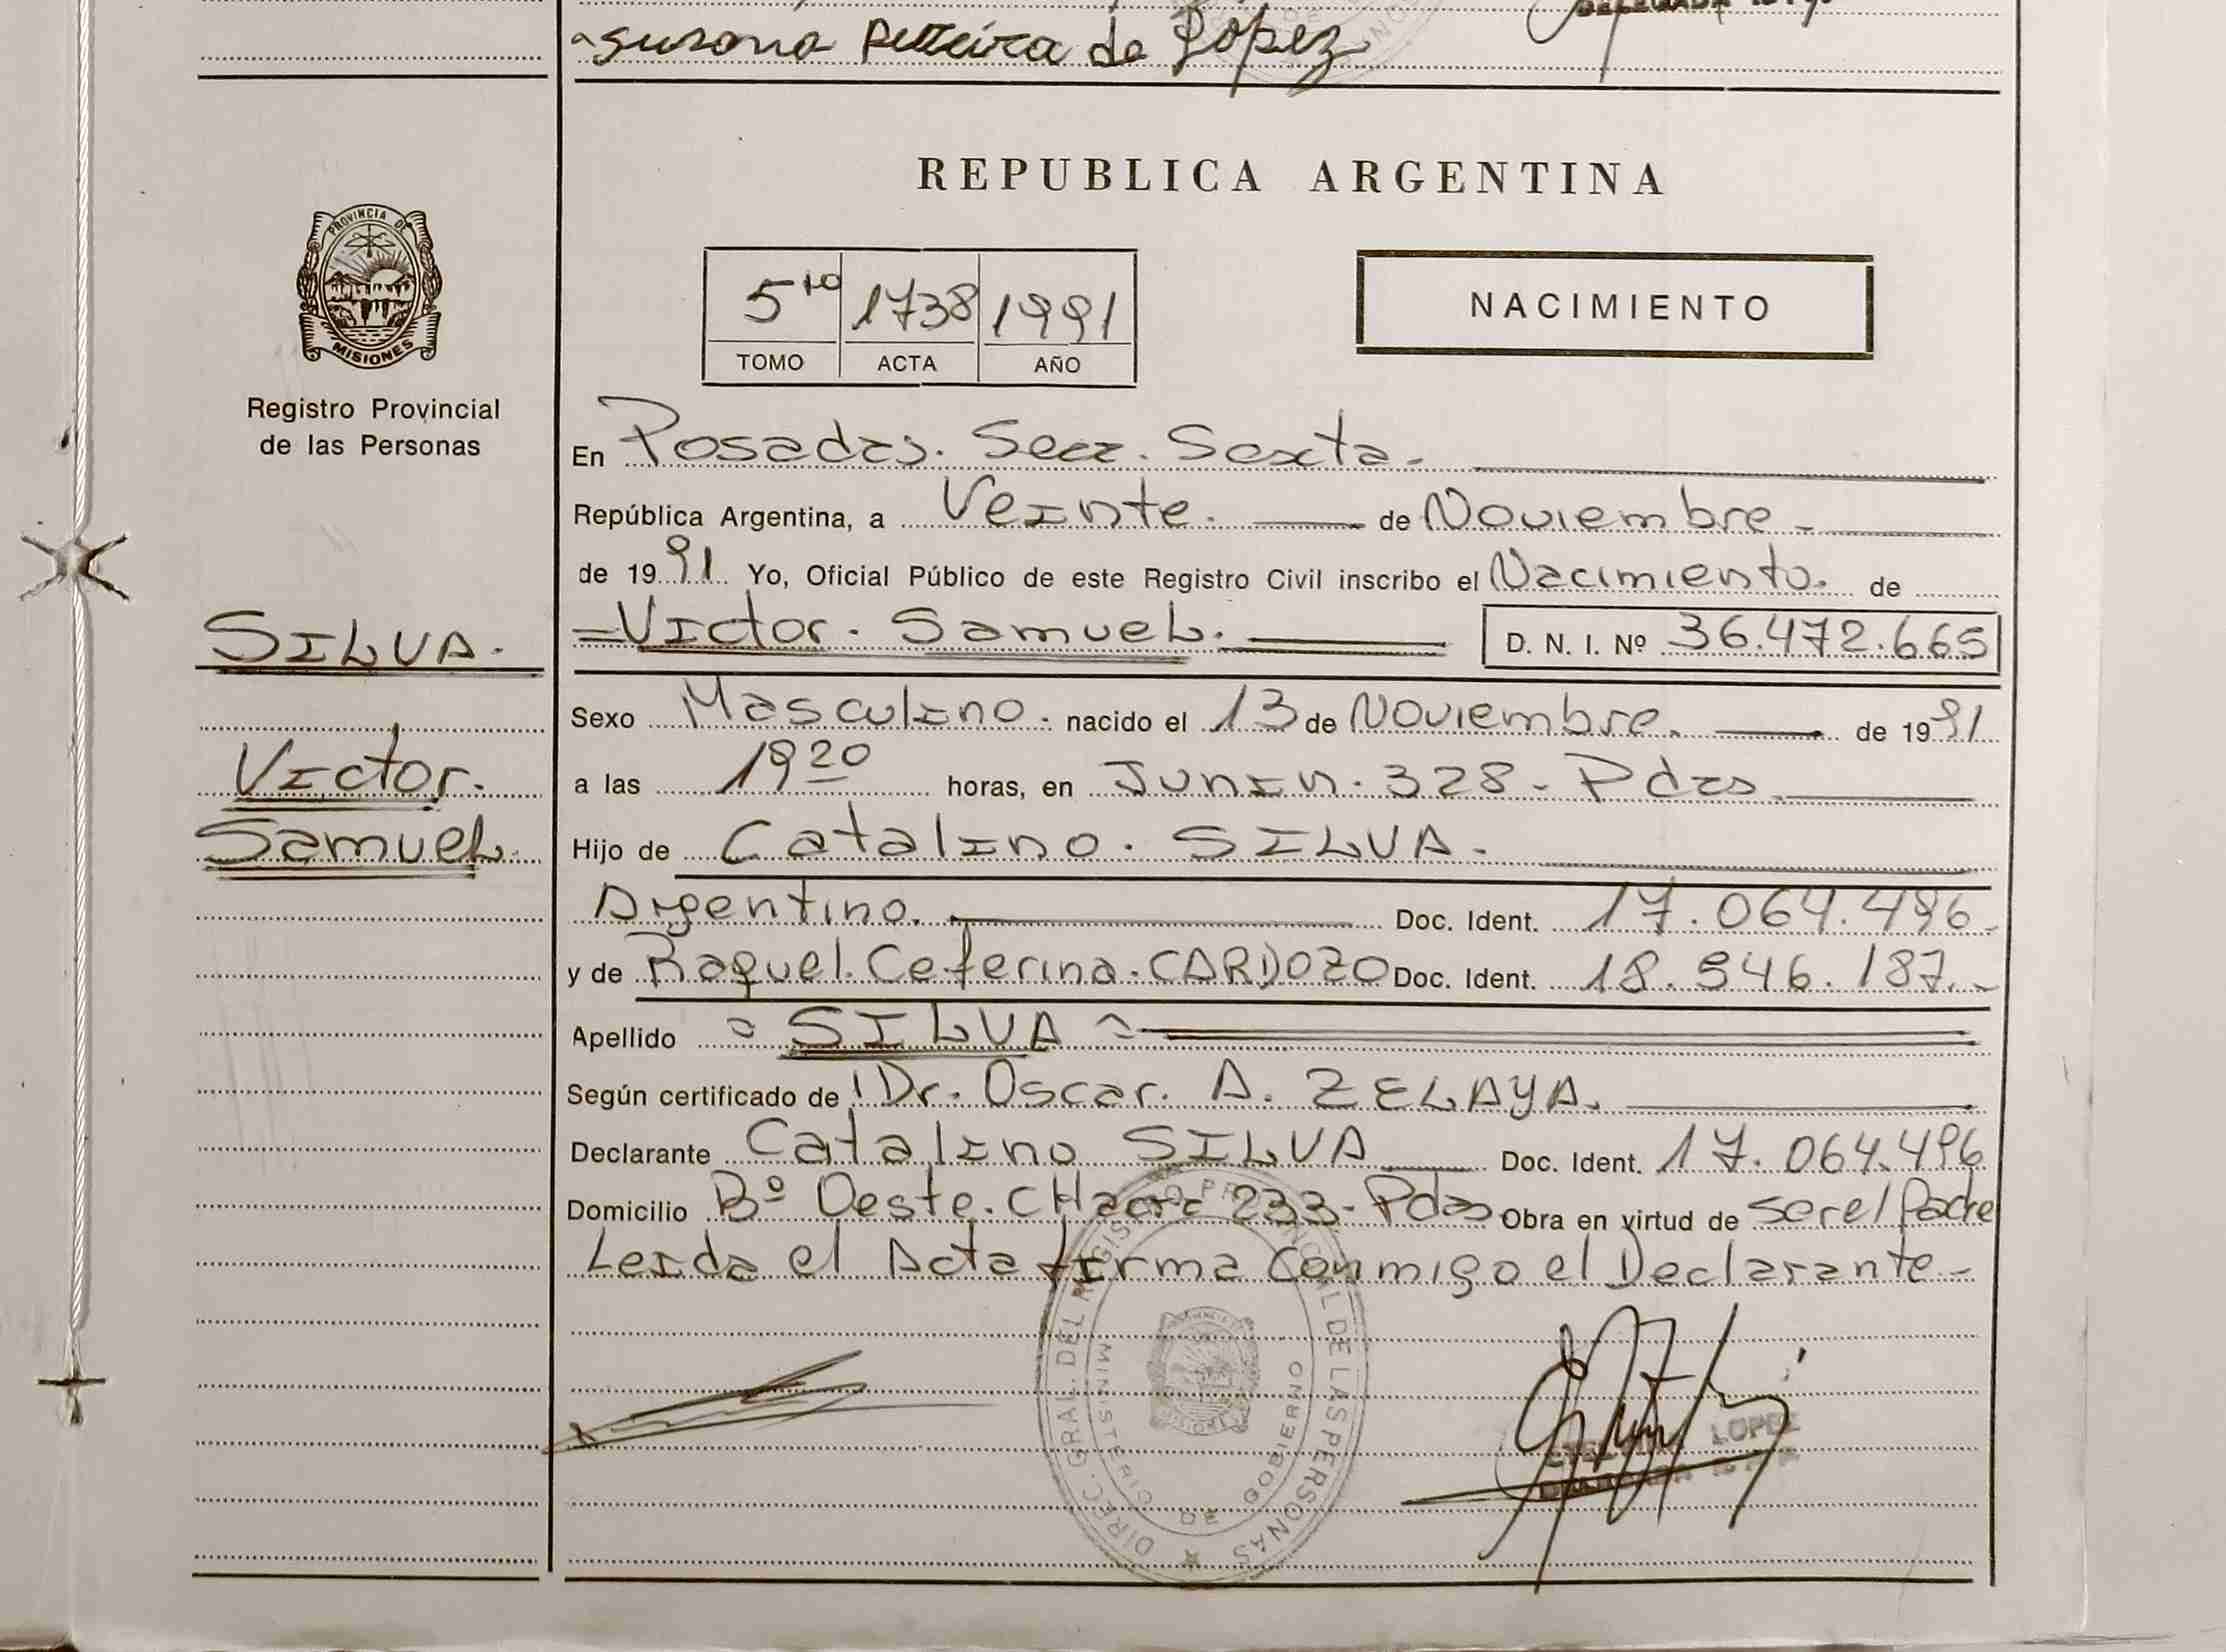 Susana Pereira de Lopez
REPUBLICA ARGENTINA
PROVINCIA DE
MISIONES
Registro Provincial
de las Personas
5to 1738 1991
TOMO ACTA AÑO
NACIMIENTO
En Posadas. Secc. Sexta.
República Argentina, a Veinte. de Noviembre
de 1991 Yo, Oficial Público de este Registro Civil inscribo el Nacimiento. de
SILVA.
Victor. Samuel. D. N. I. Nº 36.472.665
Sexo Masculino. nacido el 13 de Noviembre. de 1991
Victor.
a las 19 20 horas, en Junin. 328 - Pdas
Samuel.
Hijo de Catalino. SILVA.
Argentino. Doc. Ident. 17.064.496.
y de Raquel. Ceferina. CARDOZO Doc. Ident. 18.946.187.
Apellido = SILVA =
Según certificado de Dr. Oscar. A. ZELAYA.
Declarante Catalino SILVA Doc. Ident. 17.064.496
Domicilio Bº Oeste. CHacra 233 - Pdas Obra en virtud de ser el Padre
Leida el Acta firma Conmigo el Declarante
DIREC. GRAL. DEL REGISTRO PROVINCIAL DE LAS PERSONAS
MINISTERIO DE GOBIERNO
LOPEZ